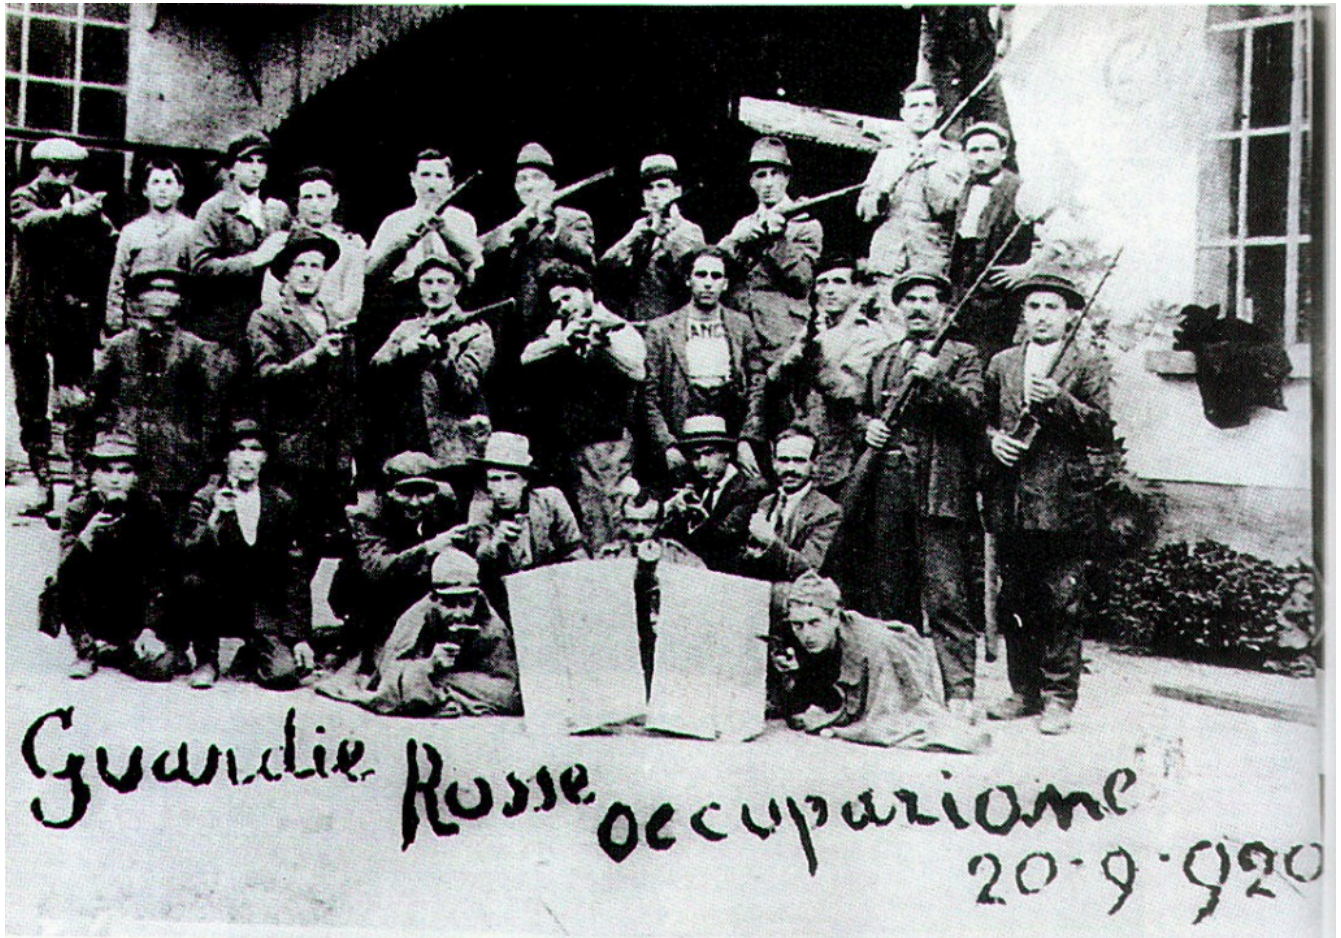 Guardie Rosse occupazione
20·9·920
ANC